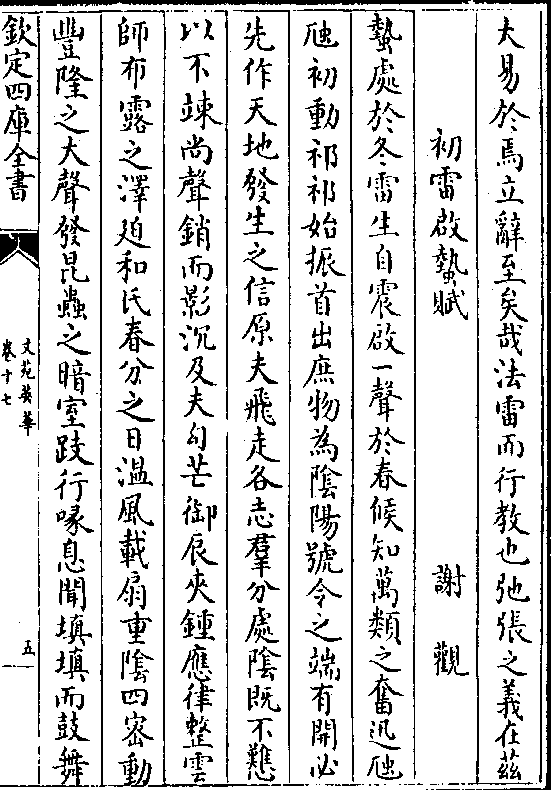 大易於焉立辭至矣哉法雷而行教也弛張之義在茲
初雷啟蟄賦 謝觀
蟄處於冬雷生自震啟一聲於春候知萬類之奮迅虺
虺初動祁祁始振首出庶物為陰陽號令之端有開必
先作天地發生之信原夫飛走各志羣分處陰既不憇
以不竦尚聲銷而影沉及夫勾芒御辰夾鍾應律整雲
師布露之澤廹和氏春分之日溫風載扇重陰四密動
豐隆之大聲發昆蟲之暗室跂行喙息聞填填而鼓舞
欽定四庫全書
文苑英華
卷十七
五